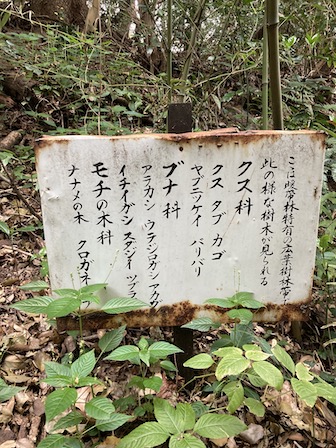 ここは暖帯林特有の広葉樹林帯で
此の様な樹木が見られる
クス科
クス タブ カゴ
ヤブニッケイ バリバリ
ブナ科
アラカシ ウラジロガシ アカガ
イチイガシ スダジイ ツブラ
モチの木科
ナナメの木 クロガネ